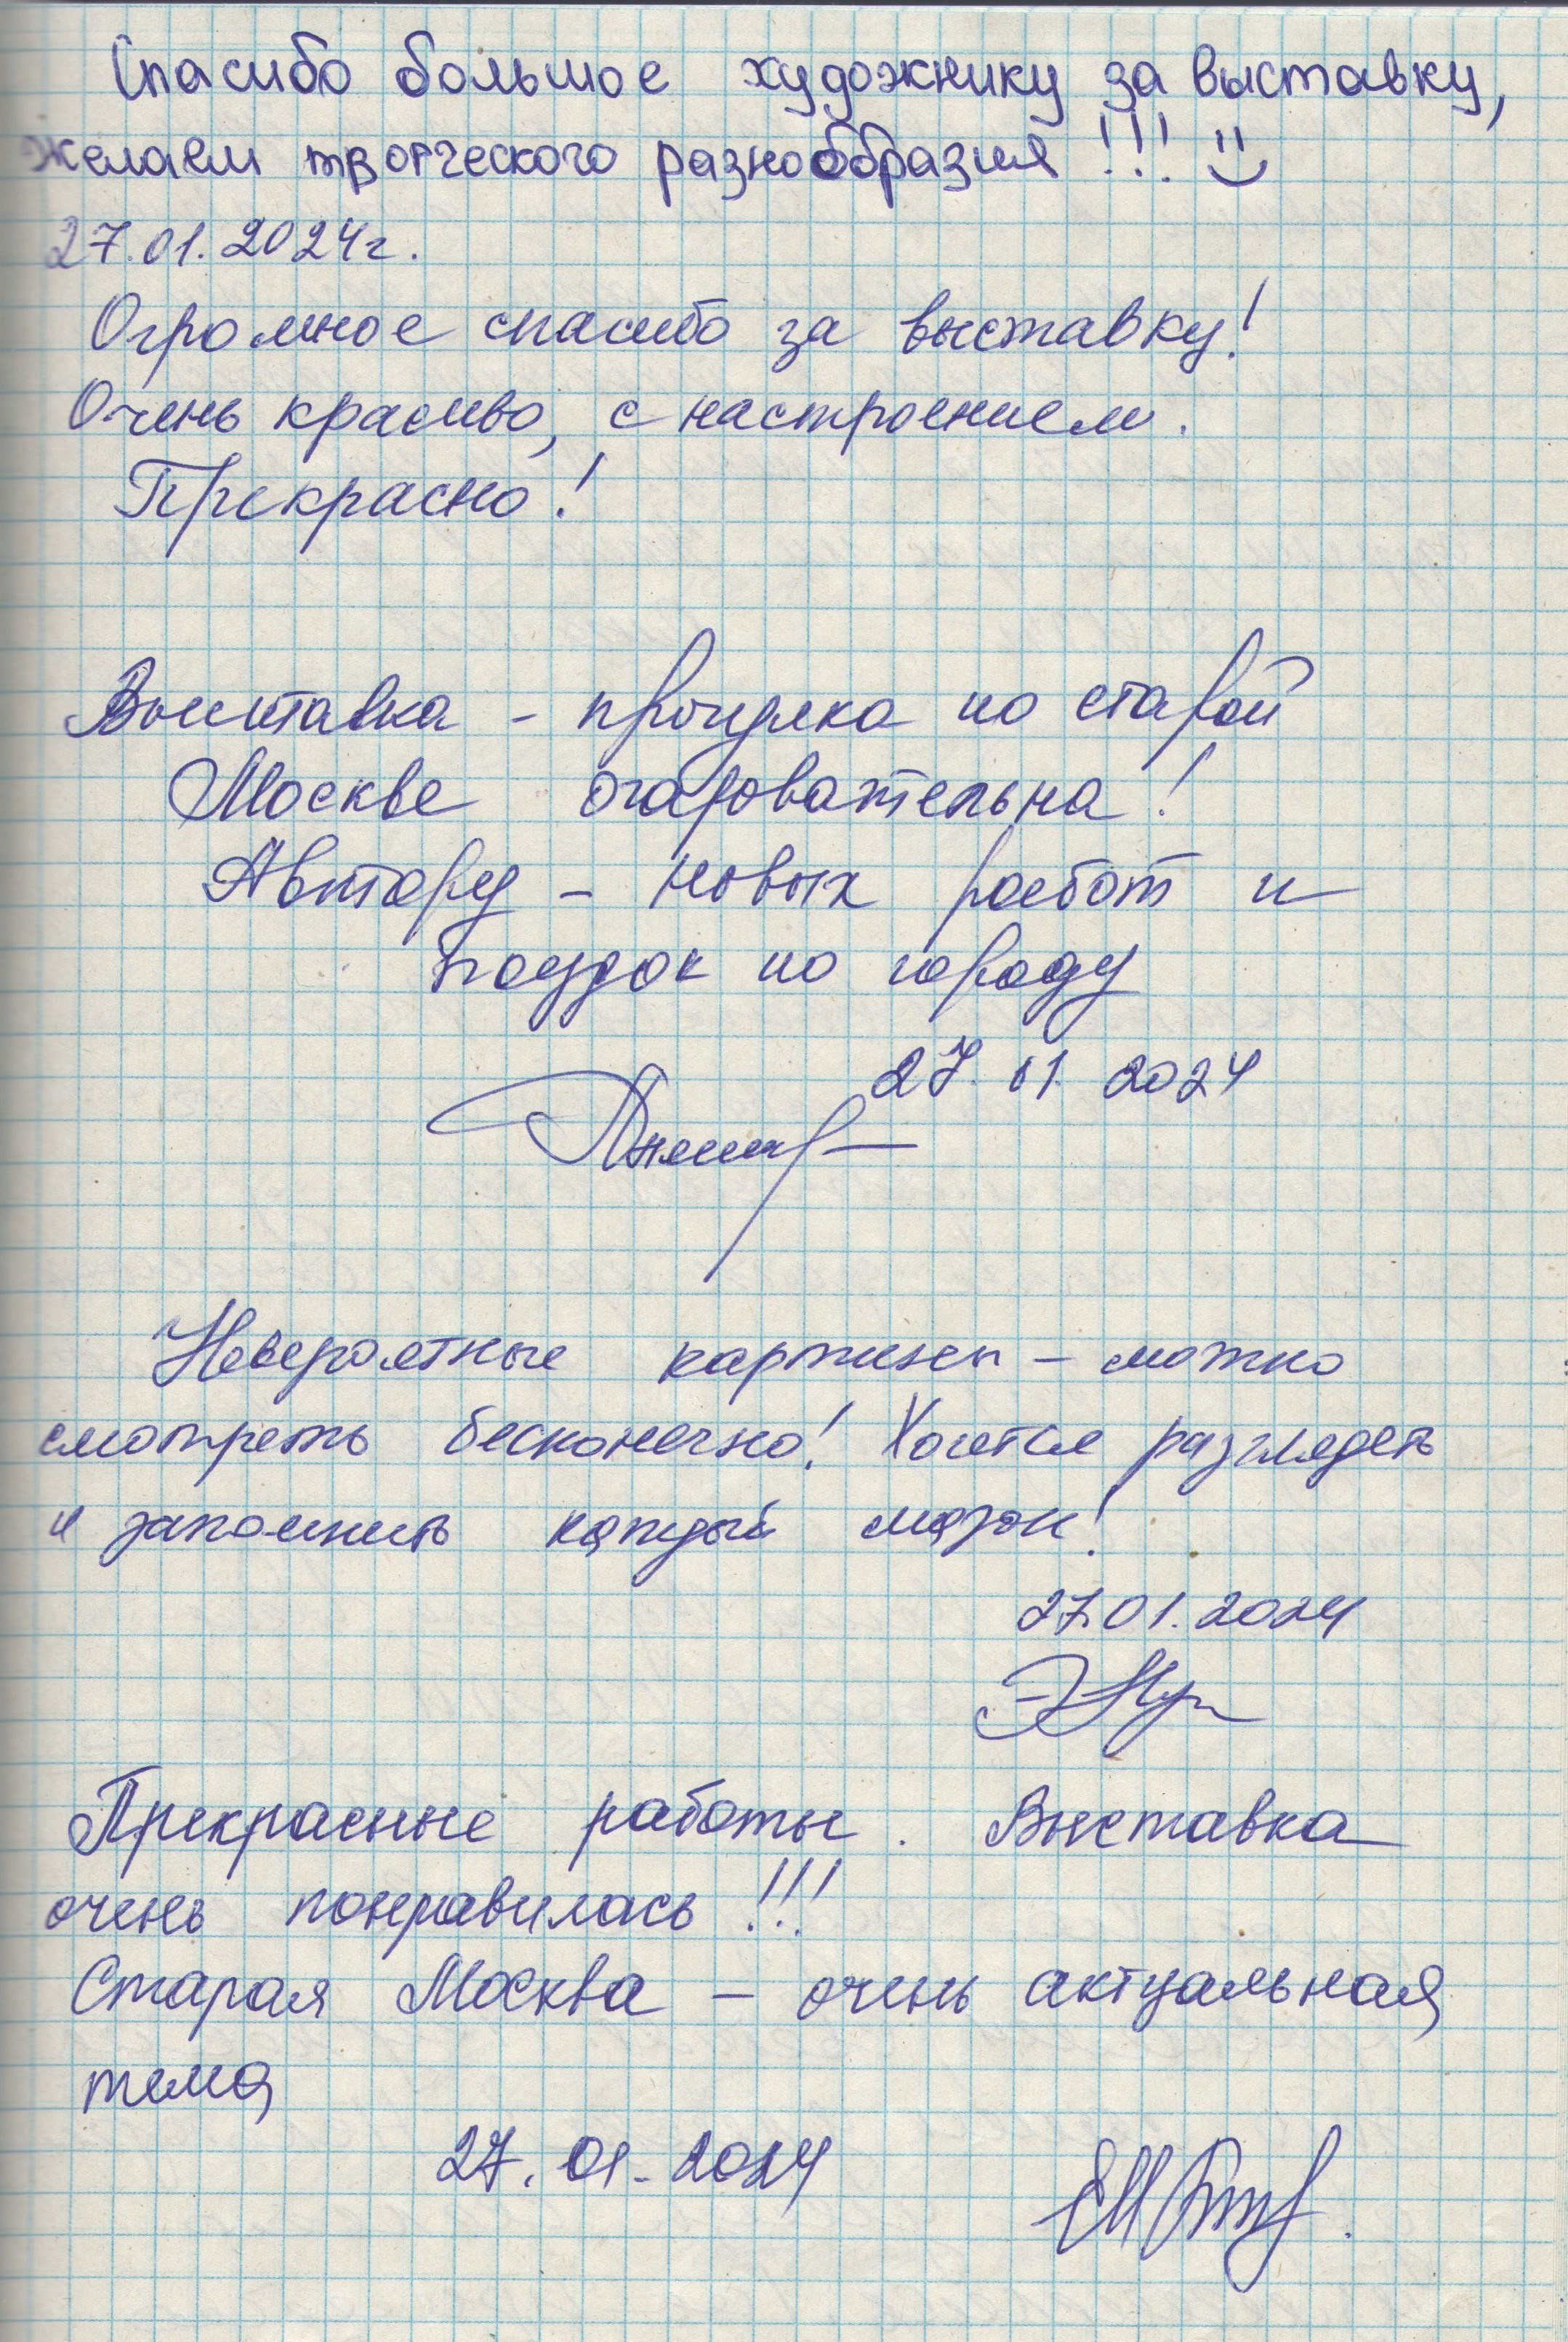 Спасибо большое художнику за выставку,
желаем творческого разнообразия!!! :)
27.01.2024г.
Огромное спасибо за выставку!
Очень красиво, с настроением.
Прекрасно!
Выставка - прогулка по старой
Москве очаровательна!
Автору - новых работ и
поездок по городу
27.01.2024
Невероятные картины - можно
смотреть бесконечно! Хочется разглядеть
и запомнить каждый мазок!
27.01.2024
Прекрасные работы. Выставка
очень понравилась!!!
Старая Москва - очень актуальная
тема
27.01.2024